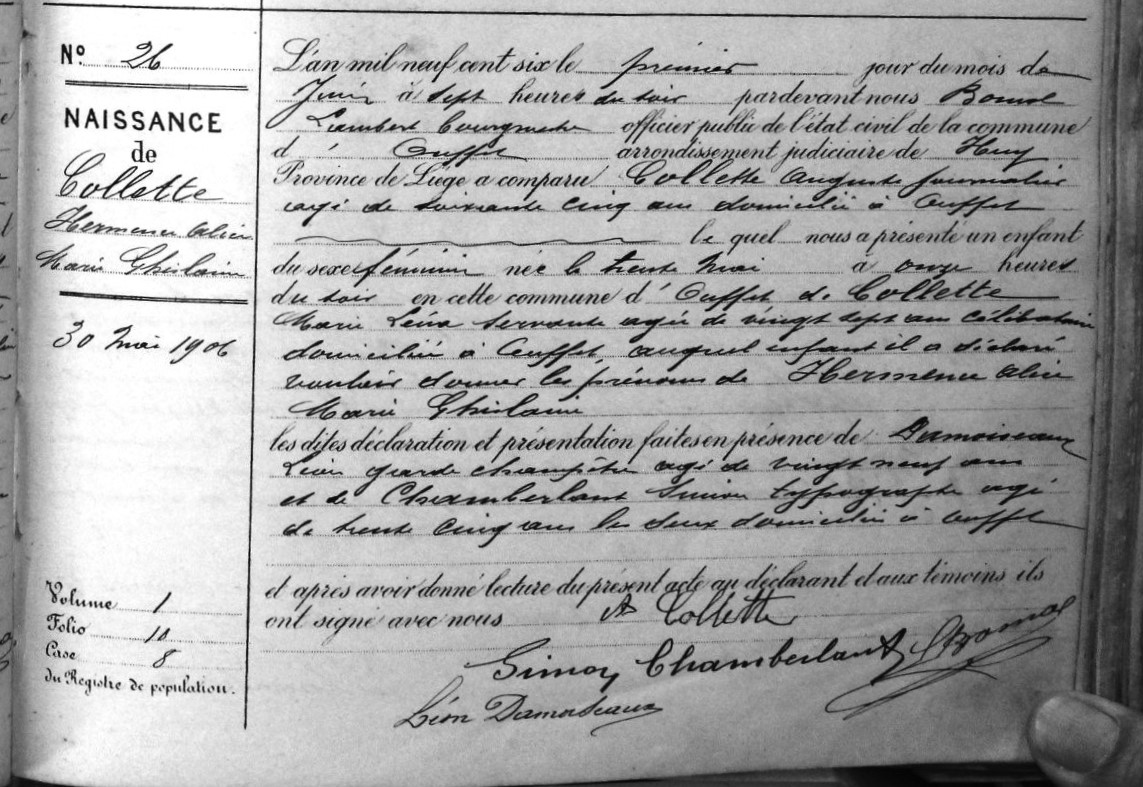 N° 26
NAISSANCE
de
Collette
Hermence Alice
Marie Ghislaine
30 Mai 1906
Volume 1
Folio 10
Case 8
du Registre de population.
L'an mil neuf cent six le premier jour du mois de
Juin à sept heures du soir pardevant nous Bomal
Lambert Bourgmestre officier public de l'état civil de la commune
d' Ouffet arrondissement judiciaire de Huy
Province de Liège a comparu Collette Auguste journalier
agé de soixante cinq ans domicilié à Ouffet
le quel nous a présenté un enfant
du sexe féminin née le trente Mai à onze heures
du soir en cette commune d' Ouffet de Collette
Marie Léna servante agée de vingt sept ans célibataire
domiciliée à Ouffet, auquel enfant il a déclaré
vouloir donner les prénoms de Hermence Alice
Marie Ghislaine
les dites déclaration et présentation faites en présence de Damoiseaux
Léon garde champêtre agé de vingt neuf ans
et de Chamberlant Simon typographe agé
de trente cinq ans les deux domiciliés à Ouffet
et après avoir donné lecture du présent acte au déclarant et aux témoins ils
ont signé avec nous A Collette
Simon Chamberlant LBomal
Léon Damoiseaux